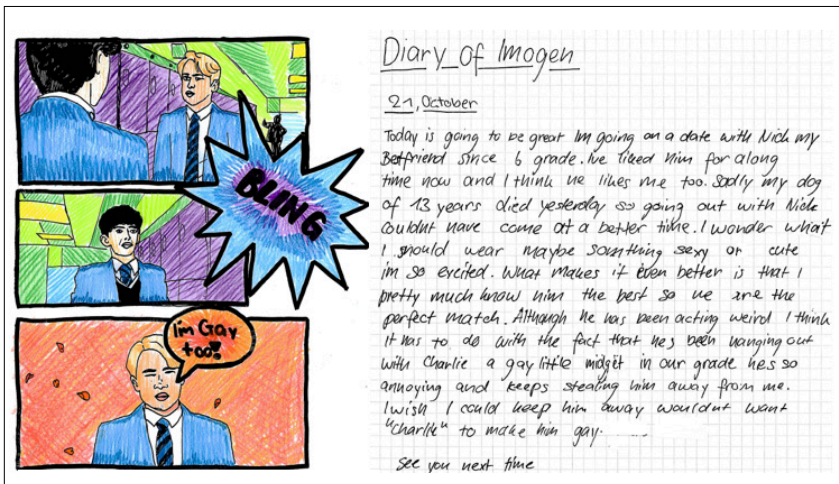 BLING
I'm Gay
too!!
Diary of Imogen
21, October
Today is going to be great Im going on a date with Nick my
Betfriend since 6 grade. Ive liked him for along
time now and I think he likes me too. Sadly my dog
of 13 years died yesterday so going out with Nick
couldnt have come at a better time. I wonder what
I should wear maybe somthing sexy or cute
im so excited. What makes it even better is that I
pretty much know him the best so we are the
perfect match. Although he has been acting weird I think
it has to do with the fact that hes been hanging out
with Charlie a gay little midget in our grade hes so
annoying and keeps stealing him away from me.
I wish I could keep him away wouldnt want
"Charlie" to make him gay.
See you next time